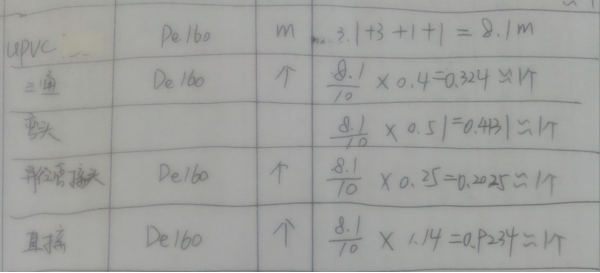 UPVC De160 m 3.1+3+1+1=8.1m
三通 De160 个 8.1/10 × 0.4=0.324≈1个
弯头 8.1/10 × 0.51=0.4131≈1个
异径管接头 De160 个 8.1/10 × 0.25=0.2025≈1个
直接 De160 个 8.1/10 × 1.14=0.9234≈1个